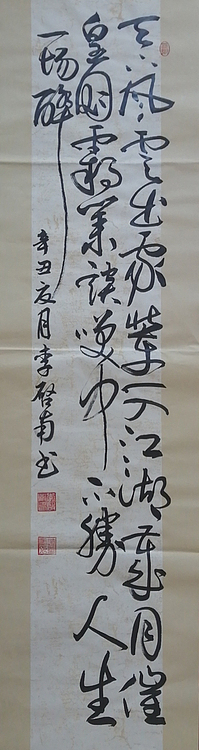 天下风云出我辈一入江湖岁月催
皇图霸业谈笑中不胜人生
一场醉
辛丑夏月李啓南书